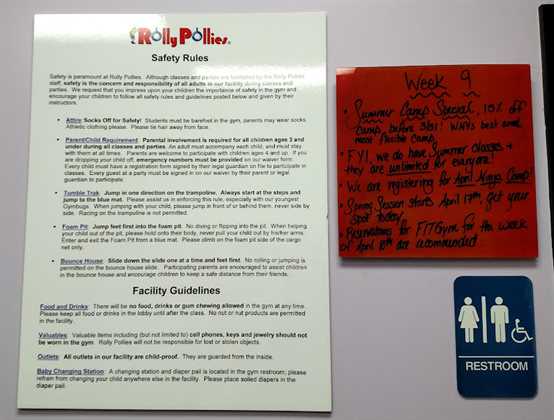 Rolly Pollies
Safety Rules
Safety is paramount at Rolly Pollies. Although classes and parties are facilitated by the Rolly Pollies
staff, safety is the concern and responsibility of all adults in our facility during classes and
parties. We request that you impress upon your children the importance of safety in the gym and
encourage your children to follow all safety rules and guidelines posted below and given by their
instructors.
Attire: Socks Off for Safety! Students must be barefoot in the gym, parents may wear socks.
Athletic clothing please. Please tie hair away from face.
Parent/Child Requirement: Parental involvement is required for all children ages 3 and
under during all classes and parties. An adult must accompany each child, and must stay
with them at all times. Parents are welcome to participate with children ages 4 and up. If you
are dropping your child off, emergency numbers must be provided on our waiver form.
Every child must have a registration form signed by their legal guardian on file to participate in
classes. Every guest at a party must be signed in on our waiver by their parent or legal
guardian to participate.
Tumble Trak: Jump in one direction on the trampoline. Always start at the steps and
jump to the blue mat. Please assist us in enforcing this rule, especially with our youngest
Gymbugs. When jumping with your child, please jump in front of or behind them, never side by
side. Racing on the trampoline is not permitted.
Foam Pit: Jump feet first into the foam pit. No diving or flipping into the pit. When helping
your child out of the pit, please hold onto their body, never pull your child out by his/her arms.
Enter and exit the Foam Pit from a blue mat. Please climb on the foam pit side of the cargo
net only.
Bounce House: Slide down the slide one at a time and feet first. No rolling or jumping is
permitted on the bounce house slide. Participating parents are encouraged to assist children
in the bounce house and encourage children to keep a safe distance from their friends.
Facility Guidelines
Food and Drinks: There will be no food, drinks or gum chewing allowed in the gym at any time.
Please keep all food or drinks in the lobby until after the class. No nut or nut products are permitted
in the facility.
Valuables: Valuable items including (but not limited to) cell phones, keys and jewelry should not
be worn in the gym. Rolly Pollies will not be responsible for lost or stolen objects.
Outlets: All outlets in our facility are child-proof. They are guarded from the inside.
Baby Changing Station: A changing station and diaper pail is located in the gym restroom; please
refrain from changing your child anywhere else in the facility. Please place soiled diapers in the
diaper pail.
Week 9
Summer Camp Special, 10% off
Camp before 3/31! WNY's best and
most flexible camp.
FYI, we do have Summer classes &
they are unlimited for everyone!
We are registering for April Ninja Camp
Spring Session starts April 17th, get your
spot today
Reservations for FIT Gym for the week
of April are recommended
RESTROOM